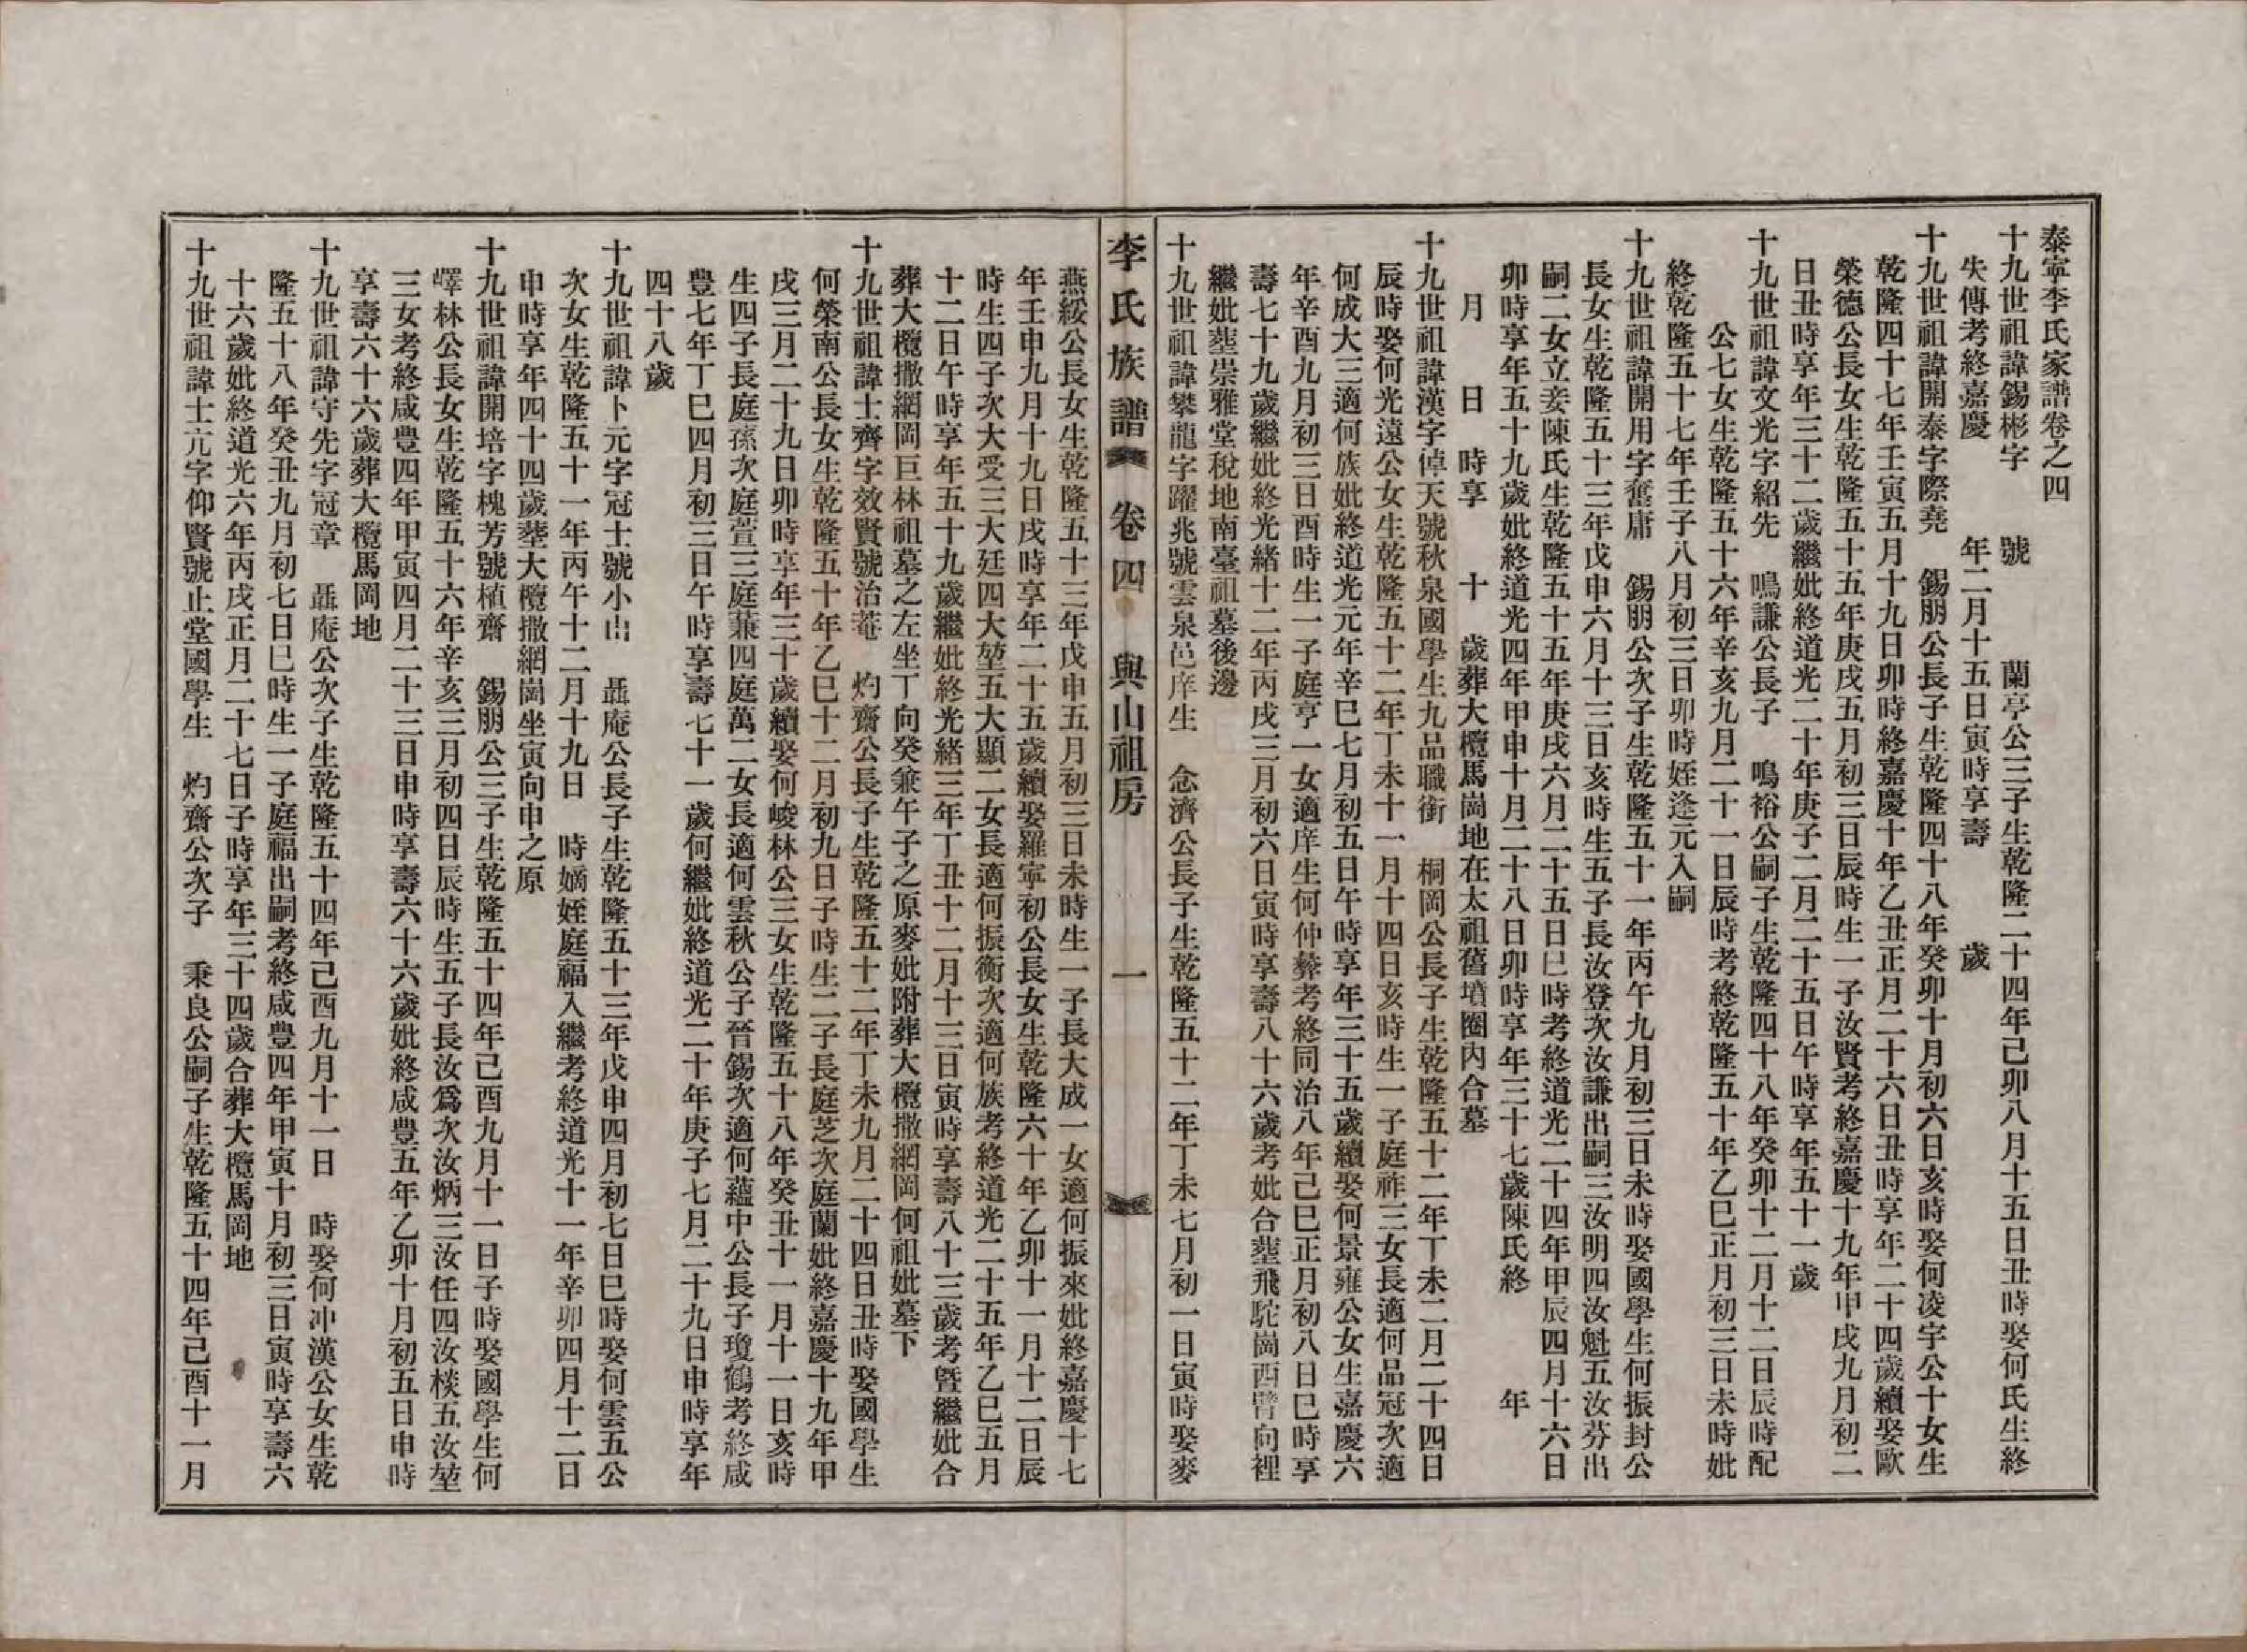 泰寧李氏家譜卷之四
十九世祖諱錫彬字 號 蘭亭公三子生乾隆二十四年己卯八月十五日丑時娶何氏生終
失傳考終嘉慶 年二月十五日寅時享壽 歲
十九世祖諱開泰字際堯 錫朋公長子生乾隆四十八年癸卯十月初六日亥時娶何凌宇公十女生
乾隆四十七年壬寅五月十九日卯時終嘉慶十年乙丑正月二十六日丑時享年二十四歲續娶歐
榮德公長女生乾隆五十五年庚戌五月初三日辰時生一子汝賢考終嘉慶十九年甲戌九月初二
日丑時享年三十二歲繼妣終道光二十年庚子二月二十五日午時享年五十一歲
十九世祖諱文光字紹先 鳴謙公長子 鳴裕公嗣子生乾隆四十八年癸卯十二月十二日辰時配
公七女生乾隆五十六年辛亥九月二十一日辰時考終乾隆五十年乙巳正月初三日未時妣
終乾隆五十七年壬子八月初三日卯時姪逢元入嗣
十九世祖諱開用字奮庸 錫朋公次子生乾隆五十一年丙午九月初三日未時娶國學生何振封公
長女生乾隆五十三年戊申六月十三日亥時生五子長汝登次汝謙出嗣三汝明四汝魁五汝芬出
嗣二女立妾陳氏生乾隆五十五年庚戌六月二十五日巳時考終道光二十四年甲辰四月十六日
卯時享年五十九歲妣終道光四年甲申十月二十八日卯時享年三十七歲陳氏終 年
月 日 時享 十 歲葬大欖馬崗地在太祖舊墳圈內合墓
十九世祖諱漢字倬天號秋泉國學生九品職銜 桐岡公長子生乾隆五十二年丁未二月二十四日
辰時娶何光遠公女生乾隆五十二年丁未十一月十四日亥時生一子庭祚三女長適何品冠次適
何成大三適何族妣終道光元年辛巳七月初五日午時享年三十五歲續娶何景雍公女生嘉慶六
年辛酉九月初三日酉時生一子庭亨一女適庠生何仲彝考終同治八年己巳正月初八日巳時享
壽七十九歲繼妣終光緒十二年丙戌三月初六日寅時享壽八十六歲考妣合塟飛駝崗西臂向裡
繼妣塟崇雅堂稅地南臺祖墓後邊
十九世祖諱攀龍字躍兆號雲泉邑庠生 念濟公長子生乾隆五十二年丁未七月初一日寅時娶麥
李氏族譜 卷四 與山祖房 一
燕綏公長女生乾隆五十三年戊申五月初三日未時生一子長大成一女適何振來妣終嘉慶十七
年壬申九月十九日戌時享年二十五歲續娶羅寧初公長女生乾隆六十年乙卯十一月十二日辰
時生四子次大受三大廷四大堃五大顯二女長適何振衡次適何族考終道光二十五年乙巳五月
十二日午時享年五十九歲繼妣終光緒三年丁丑十二月十三日寅時享壽八十三歲考曁繼妣合
葬大欖撒網岡巨林祖墓之左坐丁向癸兼午子之原麥妣附葬大欖撒網岡何祖妣墓下
十九世祖諱士齊字效賢號治菴 灼齋公長子生乾隆五十二年丁未九月二十四日丑時娶國學生
何榮南公長女生乾隆五十年乙巳十二月初九日子時生二子長庭芝次庭蘭妣終嘉慶十九年甲
戌三月二十九日卯時享年三十歲續娶何峻林公三女生乾隆五十八年癸丑十一月十一日亥時
生四子長庭蓀次庭萱三庭蒹四庭萬二女長適何雲秋公子晉錫次適何蘊中公長子瓊鶴考終咸
豊七年丁巳四月初三日午時享壽七十一歲何繼妣終道光二十年庚子七月二十九日申時享年
四十八歲
十九世祖諱卜元字冠士號小出 聶庵公長子生乾隆五十三年戊申四月初七日巳時娶何雲五公
次女生乾隆五十一年丙午十二月十九日 時嫡姪庭福入繼考終道光十一年辛卯四月十二日
申時享年四十四歲塟大欖撒網崗坐寅向申之原
十九世祖諱開培字槐芳號植齋 錫朋公三子生乾隆五十四年己酉九月十一日子時娶國學生何
嶧林公長女生乾隆五十六年辛亥三月初四日辰時生五子長汝爲次汝炳三汝任四汝棪五汝堃
三女考終咸豊四年甲寅四月二十三日申時享壽六十六歲妣終咸豊五年乙卯十月初五日申時
享壽六十六歲葬大欖馬岡地
十九世祖諱守先字冠章 聶庵公次子生乾隆五十四年己酉九月十一日 時娶何冲漢公女生乾
隆五十八年癸丑九月初七日巳時生一子庭福出嗣考終咸豊四年甲寅十月初三日寅時享壽六
十六歲妣終道光六年丙戌正月二十七日子時享年三十四歲合葬大欖馬岡地
十九世祖諱士元字仰賢號止堂國學生 灼齋公次子 秉良公嗣子生乾隆五十四年己酉十一月